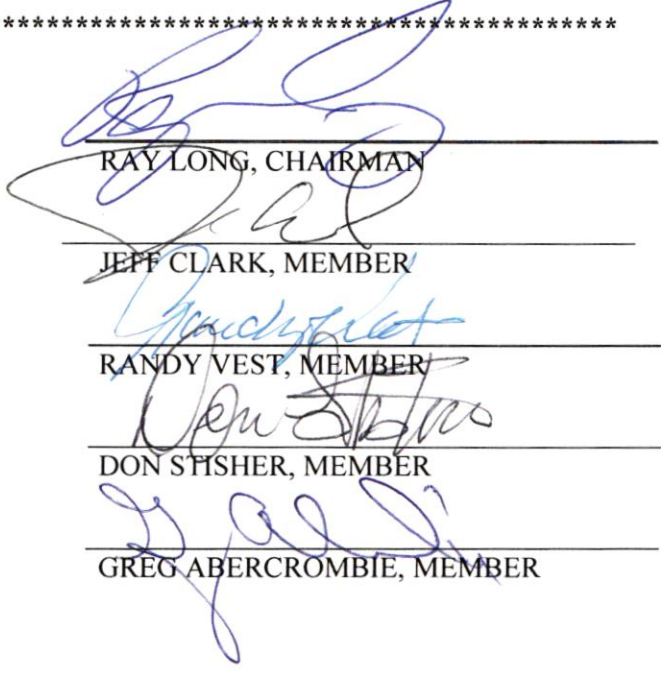 ******************************************
RAY LONG, CHAIRMAN
JEFF CLARK, MEMBER
Randy Vest
RANDY VEST, MEMBER
Don Stisher
DON STISHER, MEMBER
GREG ABERCROMBIE, MEMBER